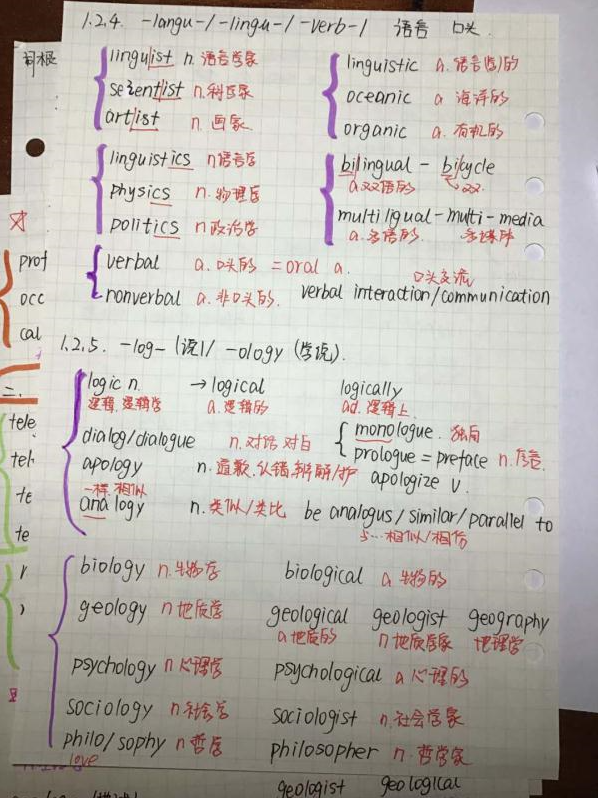 1.2.4. -langu-/-lingu-/-verb-/ 语言 口头
词根
linguist n. 语言学家
scientist n.科学家
artist n. 画家
linguistic a. 语言(学)的
oceanic a 海洋的
organic a. 有机的
linguistics n语言学
physics n. 物理学
politics n政治学
bilingual - bicycle
a.双语的 双
multiligual-multi-media
a.多语的. 多媒体
verbal a.口头的 =oral a.
nonverbal a.非口头的. verbal interaction/communication
口头交流
1.2.5. -log-(说)/ -ology (学说).
logic n. →logical logically
逻辑.逻辑学 a.逻辑的 ad.逻辑上
dialog/dialogue n.对话 对白
monologue. 独白
prologue = preface n.序言
apology n.道歉.认错.辩解/护 apologize v.
一样.相似
analogy n.类似/类比 be analogus/similar/parallel to
与…相似/相仿
biology n.生物学 biological a 生物的
geology n地质学 geological geologist geography
a地质的 n地质学家 地理学
psychology n心理学 psychological a 心理的
sociology n社会学 sociologist n.社会学家
philo/sophy n哲学 philosopher n.哲学家
love
geologist geological
prof
occ
cal
二.
tele
tel
te
te